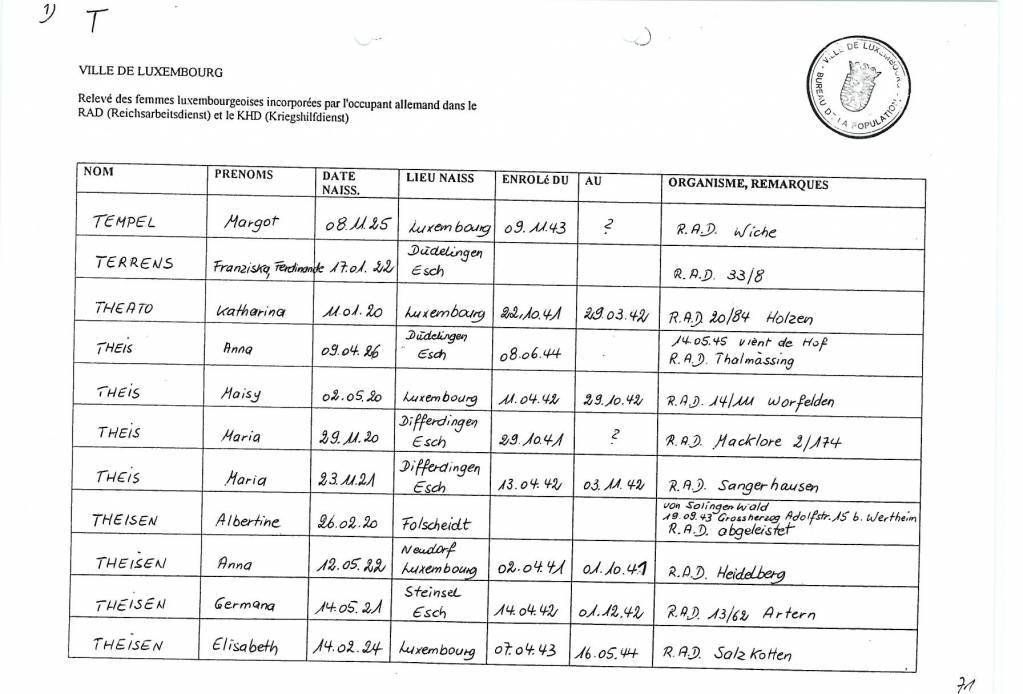 1) T
VILLE DE LUXEMBOURG
Relevé des femmes luxembourgeoises incorporées par l'occupant allemand dans le
RAD (Reichsarbeitsdienst) et le KHD (Kriegshilfdienst)
VILLE DE LUXEMBOURG - BUREAU DE LA POPULATION -
NOM PRENOMS DATE NAISS. LIEU NAISS ENROLé DU AU ORGANISME, REMARQUES
TEMPEL Margot 08.11.25 Luxembourg 09.11.43 ? R.A.D. Wiche
Düdelingen
TERRENS Franziska, Ferdinande 17.01.22 Esch R.A.D. 33/8
THEATO Katharina 11.01.20 Luxembourg 22.10.41 29.03.42 R.A.D. 20/84 Holzen
Düdelingen 14.05.45 vient de Hof
THEIS Anna 09.04.26 Esch 08.06.44 R.A.D. Thalmässing
THEIS Maisy 02.05.20 Luxembourg 11.04.42 29.10.42 R.A.D. 14/111 Worfelden
Differdingen
THEIS Maria 29.11.20 Esch 29.10.41 ? R.A.D. Macklore 2/174
Differdingen
THEIS Maria 23.11.21 Esch 13.04.42 03.11.42 R.A.D. Sangerhausen
von Solingen Wald
THEISEN Albertine 26.02.20 Folscheidt 19.09.43 Grossherzog Adolfstr. 15 b. Wertheim
R.A.D. abgeleistet
Neudorf
THEISEN Anna 12.05.22 Luxembourg 02.04.41 01.10.41 R.A.D. Heidelberg
Steinsel
THEISEN Germana 14.05.21 Esch 14.04.42 01.12.42 R.A.D. 13/62 Artern
THEISEN Elisabeth 14.02.24 Luxembourg 07.04.43 16.05.44 R.A.D. Salzkotten
71